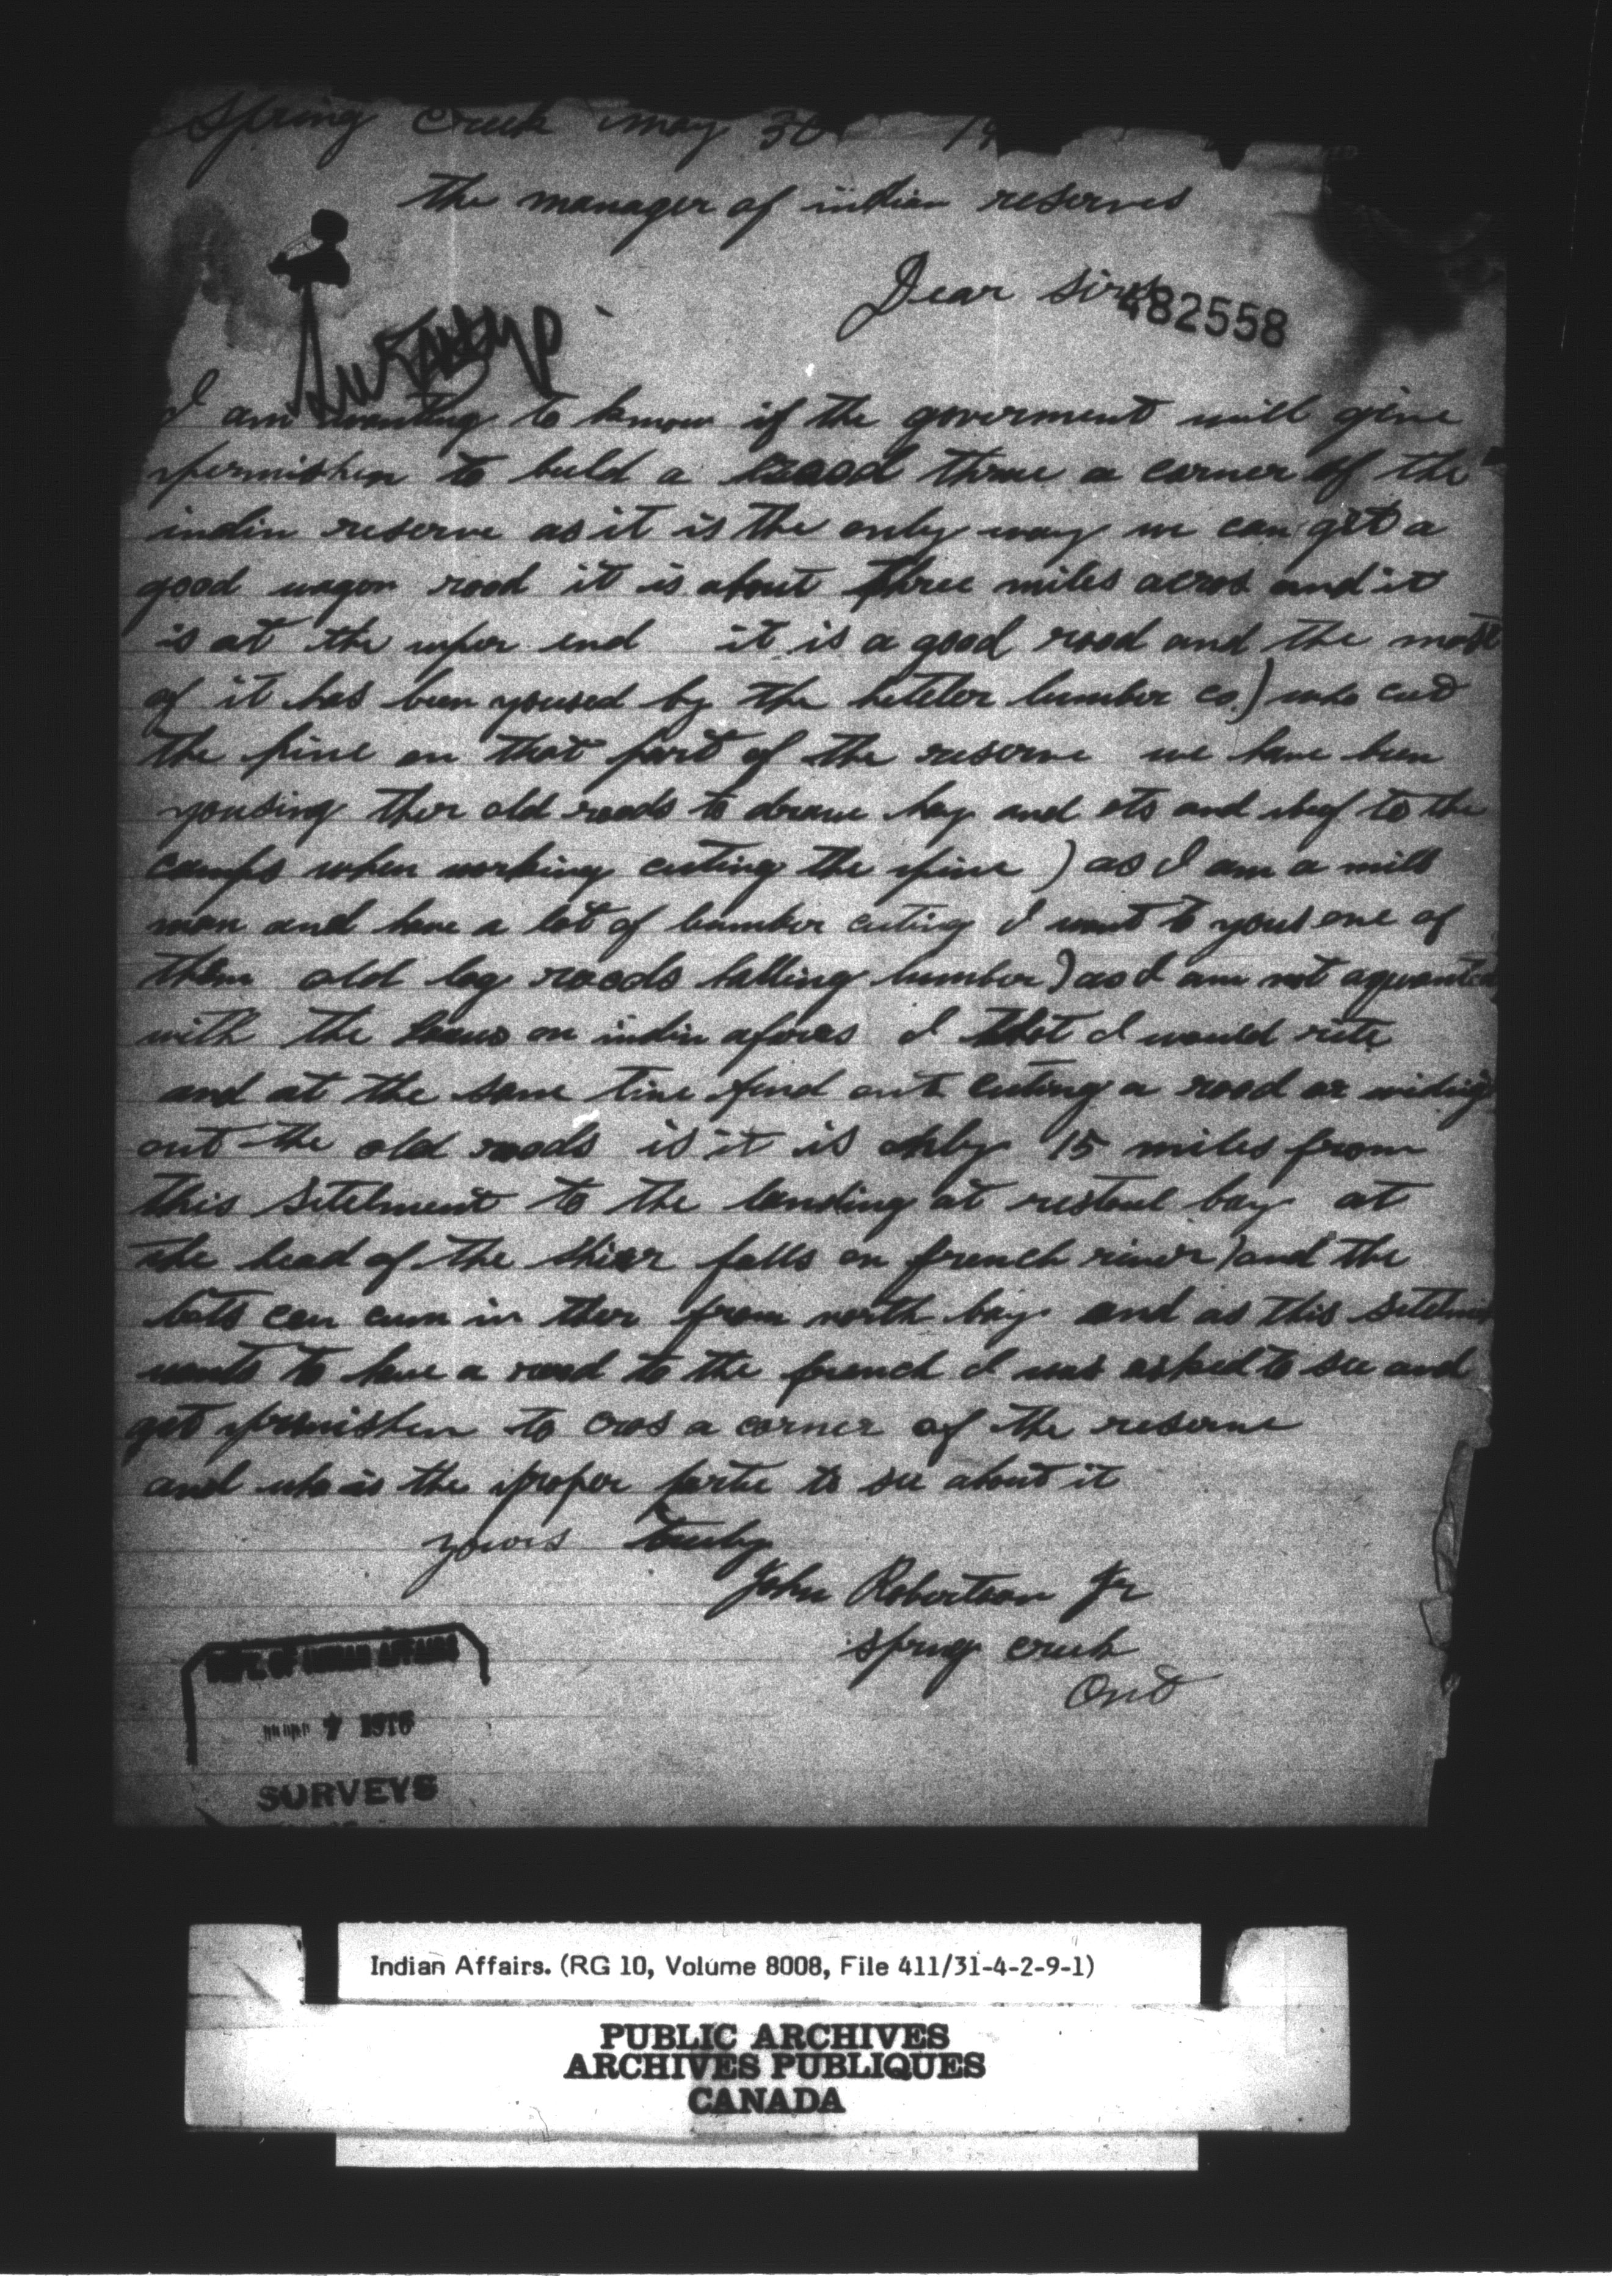 Spring Creek may 30 19
the manager of indian reserves
Dear sirs
482558
I am wanting to know if the goverment will give
permishen to buld a road threw a corner of the
indin reserve as it is the only way we can get a
good wagon rood it is about three miles acros and it
is at the uper end it is a good rood and the most
of it has been youssed by the lumber co.) who cut
the pine on that part of the reserve we have been
yousing ther old roads to draw hay and ots and beef to the
camps when working cuting the pine ) as I am a mill
man and have a lot of lumber cuting I want to yous one of
them old log roads halling lumber) as I am not aquanted
with the laws on indin afares I thot I would rite
and at the same time find out cuting a road or widing
out the old roods is it is only 15 miles from
this setelment to the landing at restoul bay at
the head of the falls on french river) and the
bots can cum in ther from north bay and as this setelmen
wants to have a rood to the french I was asked to see and
get permishen to cros a corner of the reserve
and who is the proper partie to see about it
yours truly
John Robertson Jr
spring creek
Ont
DEPT. OF INDIAN AFFAIRS
7 1916
SURVEYS
Indian Affairs. (RG 10, Volume 8008, File 411/31-4-2-9-1)
PUBLIC ARCHIVES
ARCHIVES PUBLIQUES
CANADA